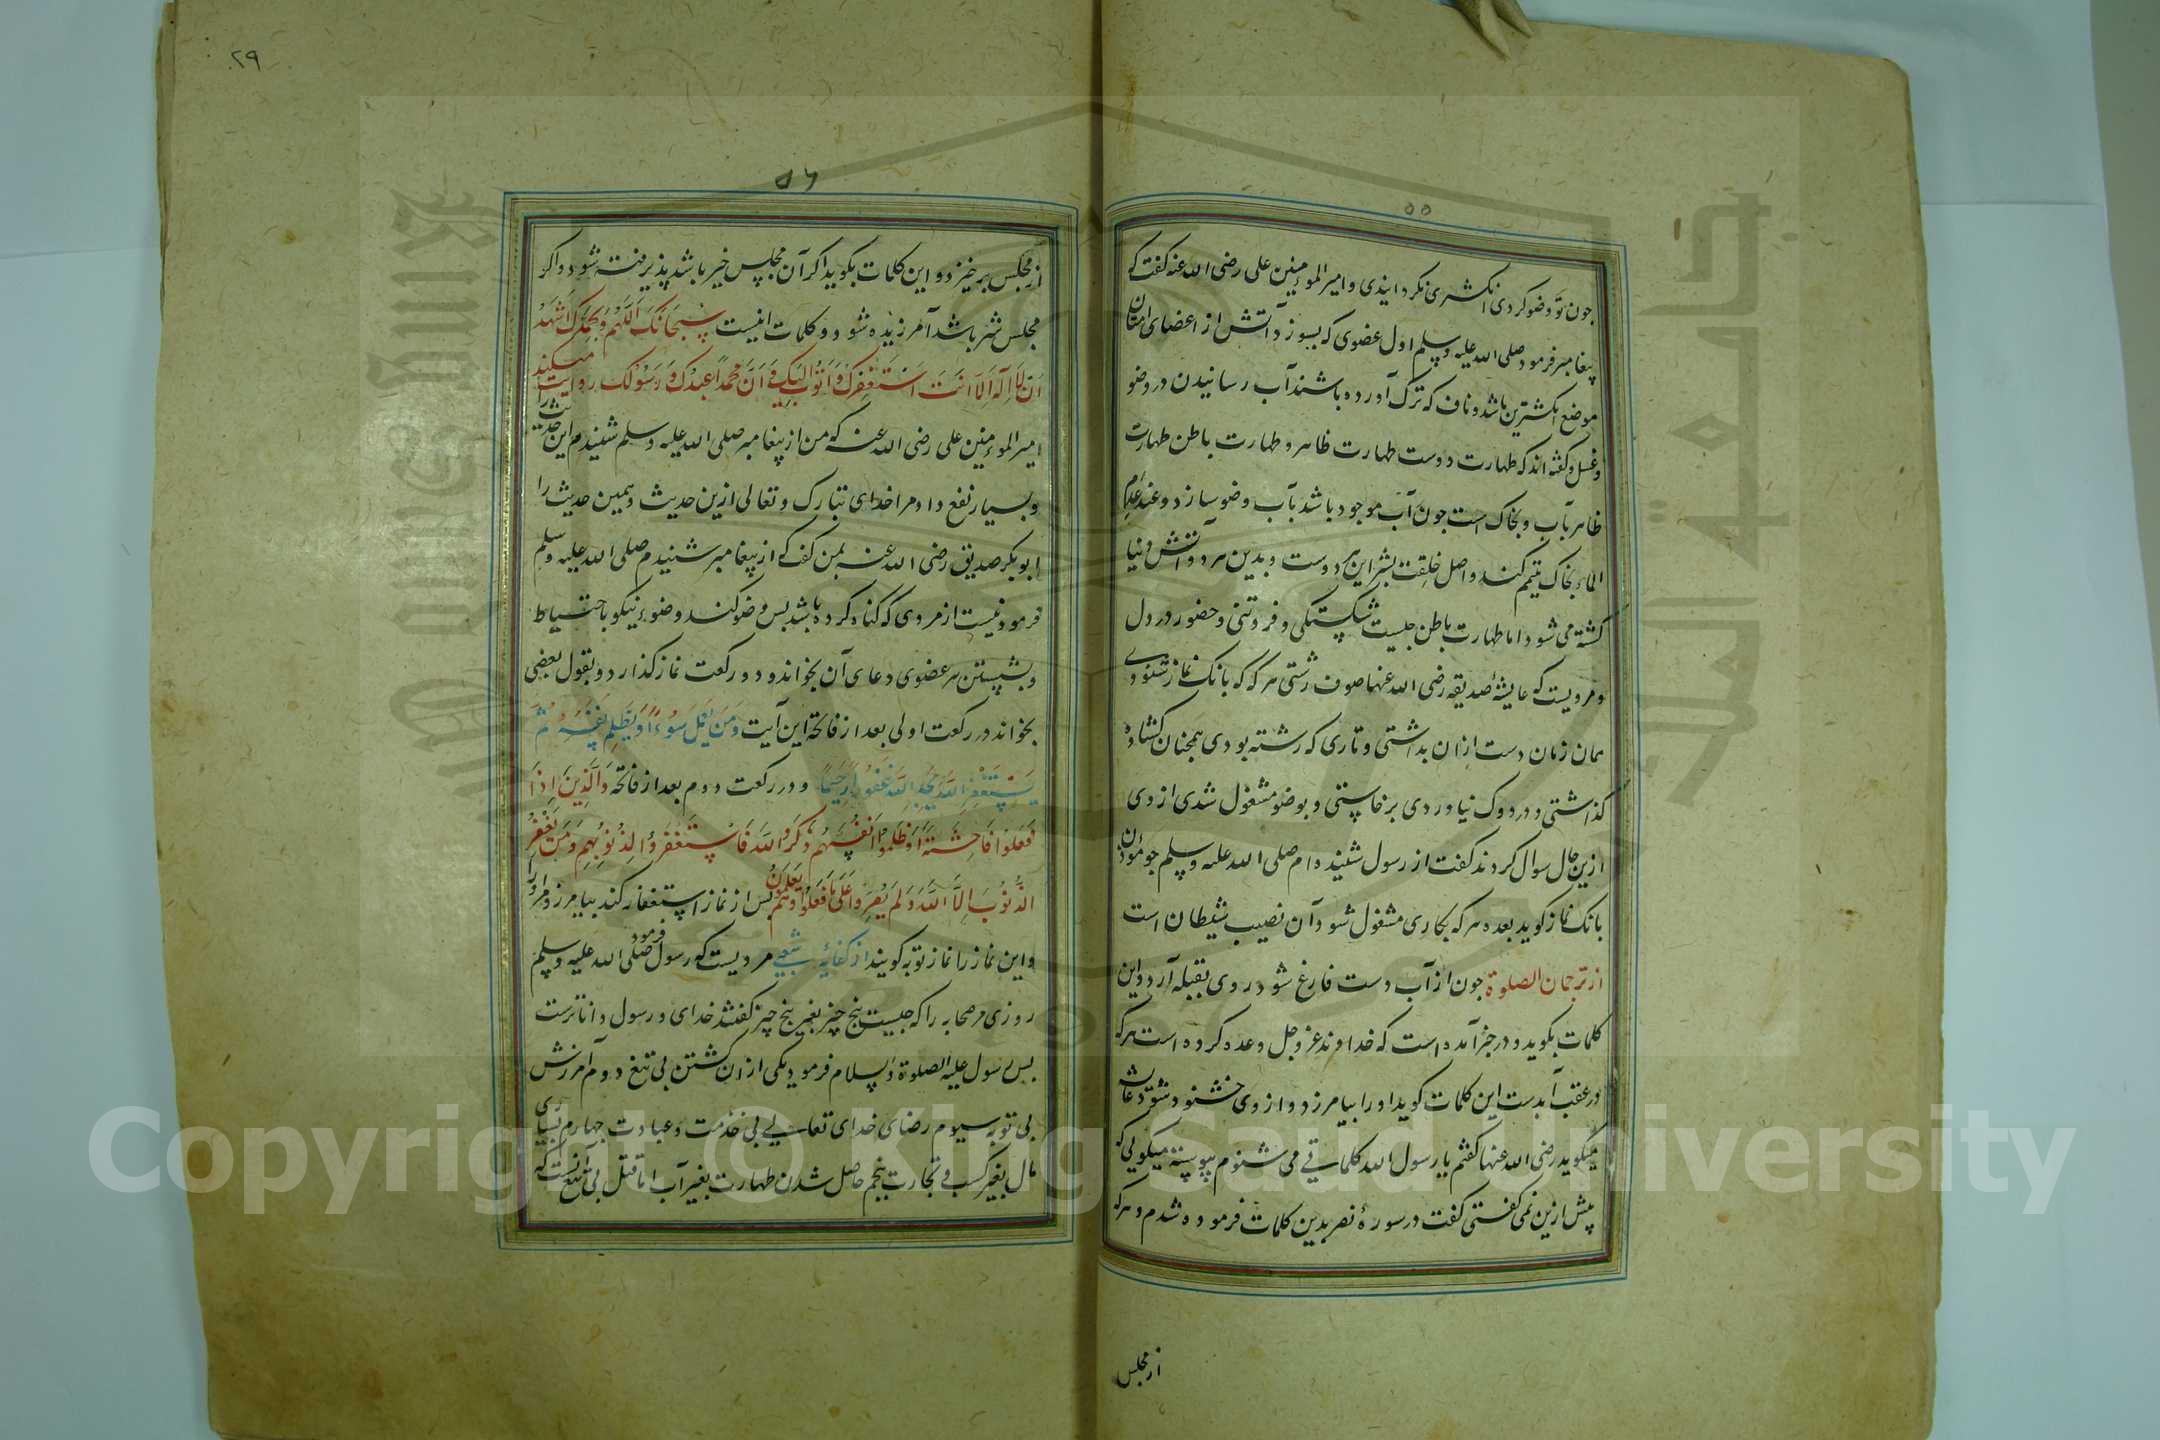 ۵۵
جون تو وضو کردی انکشتری نکردانیدی و امیر المؤمنین علی رضی الله عنه کفت که
پیغامبر فرمود صلی الله علیه وسلم اول عضوی که بسوزد آتش از اعضای امتان من
موضع انکشترین باشد و ناف که ترک آورده باشند آب رسانیدن در وضو
و غسل و کفته اند که طهارت دوست طهارت ظاهر و طهارت باطن طهارت
ظاهر بآب و بخاک است جون آب موجود باشد بآب وضو سازد و عند عدم
الماء بخاک تیمم کند و اصل خلقت بشر این هر دوست و بدین هر دو آتش دنیا
کشته می شود اما طهارت باطن جیست شکستکی و فروتنی و حضور در دل
و مرویست که عایشهٔ صدیقه رضی الله عنها صوف رشتی هر که که بانک نماز شنودی
همان زمان دست ازان بداشتی و تاری که رشته بودی همجنان کشاده
کذاشتی و در دوک نیاوردی برخاستی و بوضو مشغول شدی از وی
ازین حال سوال کردند کفت از رسول شنیده ام صلی الله علیه وسلم جو مؤذن
بانک نماز کوید بعده هر که بکاری مشغول شود آن نصیب شیطان است
از ترجمان الصلوة جون از آب دست فارغ شود روی بقبله آرد و این
کلمات بکوید و در خبر آمده است که خداوند عز و جل وعده کرده است هرکه
در عقب آبدست این کلمات کوید او را بیامرزد و از وی خشنود شود عایشه
میکوید رضی الله عنها کفتم یا رسول الله کلماتی می شنوم پیوسته میکویی که
پیش ازین نمی کفتی کفت در سورهٔ نصر بدین کلمات فرموده شدم و هرکه
از مجلس
۲۹
۵۶
از مجلس برخیزد و این کلمات بکوید اکر آن مجلس خیر باشد پذیرفته شود و اکر
مجلس شر باشد آمرزیده شود و کلمات اینست سبحانک اللهم و بحمدک اشهد
ان لا اله الا انت استغفرک و اتوب الیک و ان محمدا عبدک و رسولک روایت میکند
امیر المؤمنین علی رضی الله عنه که من از پیغامبر صلی الله علیه وسلم شنیدم این حدیث را
و بسیار نفع داد مرا خدای تبارک و تعالی ازین حدیث و همین حدیث را
ابوبکر صدیق رضی الله عنه بمن کفت که از پیغامبر شنیدم صلی الله علیه وسلم
فرمود نیست از مردی که کناه کرده باشد بس وضو کند وضوء نیکو باحتیاط
و بشستن هر عضوی دعای آن بخواند و دو رکعت نماز کذارد و بقول بعضی
بخواند در رکعت اولی بعد از فاتحه این آیت وَمَنْ یَعْمَلْ سُوءًا اَوْ یَظْلِمْ نَفْسَهُ ثُمَّ
یَسْتَغْفِرِ اللّهَ یَجِدِ اللّهَ غَفُورًا رَحِیمًا و در رکعت دوم بعد از فاتحه وَالَّذِینَ اِذَا
فَعَلُوا فَاحِشَةً اَوْ ظَلَمُوا اَنْفُسَهُمْ ذَکَرُوا اللّهَ فَاسْتَغْفَرُوا لِذُنُوبِهِمْ وَمَنْ یَغْفِرُ
الذُّنُوبَ اِلَّا اللّهُ وَلَمْ یُصِرُّوا عَلَی مَا فَعَلُوا وَهُمْ یَعْلَمُونَ بس از نماز استغفار کند بیامرزد مر او را
و این نماز را نماز توبه کویند از کفایهٔ شعبی مرویست که رسول فرمود صلی الله علیه وسلم
روزی مر صحابه را که جیست پنج چیز بغیر پنج چیز کفتند خدای و رسول داناترست
بس رسول علیه الصلوة والسلام فرمود یکی ازان کشتن بی تیغ دوم آمرزش
بی توبه سیوم رضای خدای تعالی بی خدمت و عبادت جهارم بسیاری
مال بغیر کسب و تجارت پنجم حاصل شدن طهارت بغیر آب اما قتل بی تیغ آنست که
Copyright © King Saud University
جامعة الملك سعود
King Saud University
1957